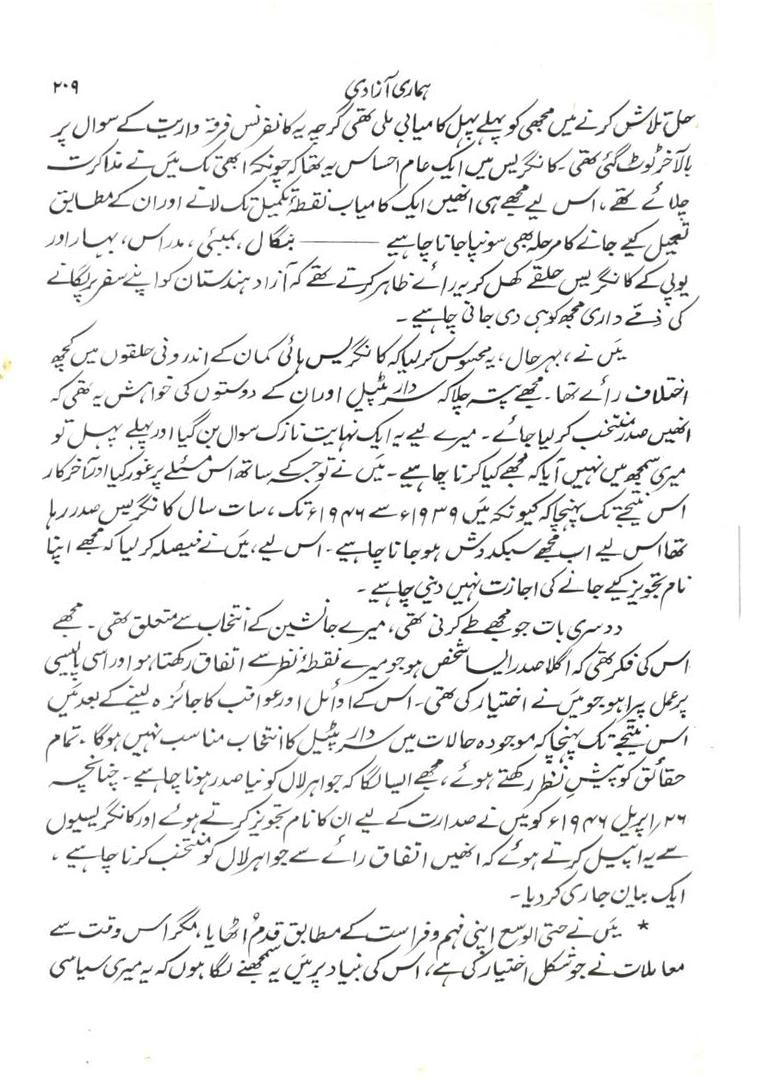 ہماری آزادی ۲۰۹
حل تلاش کرنے میں مجھی کو پہلے پہل کامیابی ملی تھی گرچہ یہ کانفرنس فرقہ واریت کے سوال پر
بالآخر ٹوٹ گئی تھی۔ کانگریس میں ایک عام احساس یہ تھا کہ چونکہ ابھی تک میَں نے مذاکرت
چلائے تھے، اس لیے مجھے ہی انھیں ایک کامیاب نقطۂ تکمیل تک لانے اور ان کے مطابق
تعمیل کیے جانے کا مرحلہ بھی سونپا جانا چاہیے ——— بنگال، بمبئی، مدراس، بہار اور
یوپی کے کانگریس حلقے کھل کر یہ رائے ظاہر کرتے تھے کہ آزاد ہندستان کو اپنے سفر پر لگانے
کی ذمّے داری مجھ کو ہی دی جانی چاہیے۔
میَں نے، بہرحال، یہ محسوس کر لیا کہ کانگریس ہائی کمان کے اندرونی حلقوں میں کچھ
اختلاف رائے تھا۔ مجھے پتہ چلا کہ سردار پٹیل اور ان کے دوستوں کی خواہش یہ تھی کہ
انھیں صدر منتخب کر لیا جائے۔ میرے لیے یہ ایک نہایت نازک سوال بن گیا اور پہلے پہل تو
میری سمجھ میں نہیں آیا کہ مجھے کیا کرنا چاہیے۔ میَں نے توجہ کے ساتھ اس مسئلے پر غور کیا اور آخر کار
اس نتیجے تک پہنچا کہ کیونکہ میَں ۱۹۳۹ء سے ۱۹۴۶ء تک، سات سال کانگریس صدر رہا
تھا اس لیے اب مجھے سبکدوش ہو جانا چاہیے۔ اس لیے، میَں نے فیصلہ کر لیا کہ مجھے اپنا
نام تجویز کیے جانے کی اجازت نہیں دینی چاہیے۔
دوسری بات جو مجھے طے کرنی تھی، میرے جانشین کے انتخاب سے متعلق تھی۔ مجھے
اس کی فکر تھی کہ اگلا صدر ایسا شخص ہو جو میرے نقطۂ نظر سے اتفاق رکھتا ہو اور اسی پالیسی
پر عمل پیرا ہو جو میَں نے اختیار کی تھی۔ اس کے اوائل اور عواقب کا جائزہ لینے کے بعد میَں
اس نتیجے تک پہنچا کہ موجودہ حالات میں سردار پٹیل کا انتخاب مناسب نہیں ہوگا۔ تمام
حقائق کو پیشِ نظر رکھتے ہوئے، مجھے ایسا لگا کہ جواہر لال کو نیا صدر ہونا چاہیے۔ چنانچہ
۲۶؍اپریل ۱۹۴۶ء کو میَں نے صدارت کے لیے ان کا نام تجویز کرتے ہوئے اور کانگریسیوں
سے یہ اپیل کرتے ہوئے کہ انھیں اتفاق رائے سے جواہر لال کو منتخب کرنا چاہیے،
ایک بیان جاری کر دیا۔
* میَں نے حتی الوسع اپنی فہم و فراست کے مطابق قدم اٹھایا، مگر اس وقت سے
معاملات نے جو شکل اختیار کی ہے، اس کی بنیاد پر میَں یہ سمجھنے لگا ہوں کہ یہ میری سیاسی